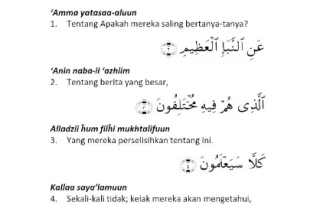 ‘Amma yatasaa-aluun
1. Tentang Apakah mereka saling bertanya-tanya?
عَنِ النَّبَإِ الْعَظِيمِ
‘Anin naba-ii ‘azhiim
2. Tentang berita yang besar,
الَّذِي هُمْ فِيهِ مُخْتَلِفُونَ
Alladzii ĥum fiiĥi mukhtalifuun
3. Yang mereka perselisihkan tentang ini.
كَلَّا سَيَعْلَمُونَ
Kallaa saya’lamuun
4. Sekali-kali tidak; kelak mereka akan mengetahui,